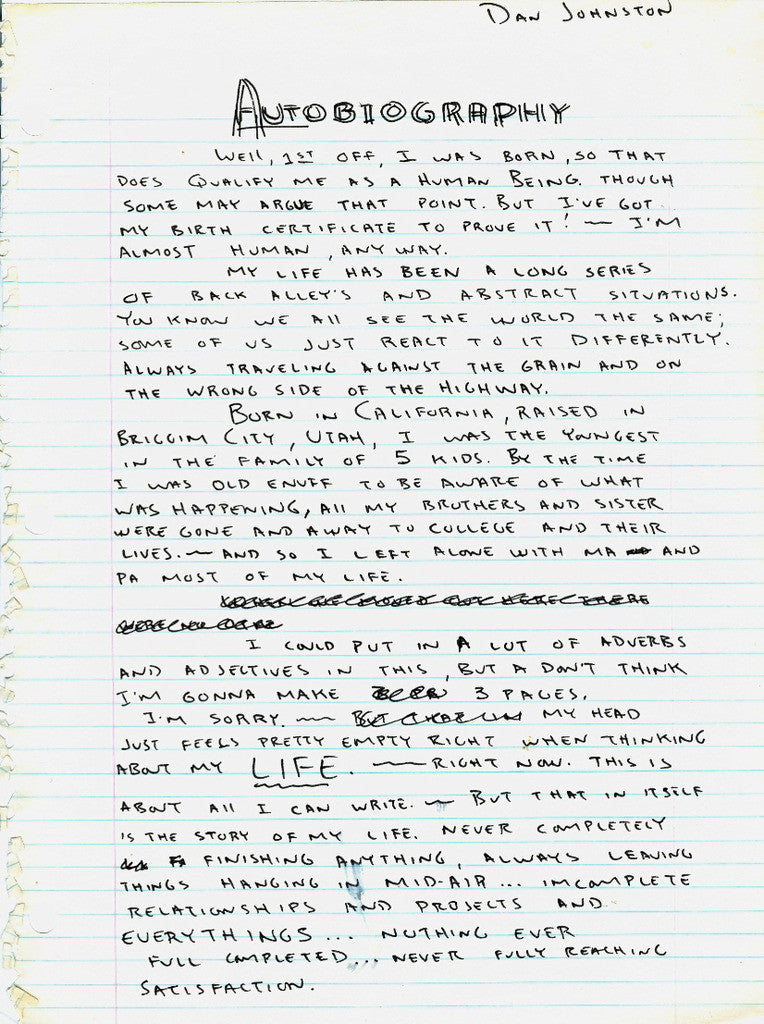 DAN JOHNSTON
AUTOBIOGRAPHY
WEll, 1ST OFF, I WAS BORN, SO THAT
DOES QUALIFY ME AS A HUMAN BEING. THOUGH
SOME MAY ARGUE THAT POINT. BUT I'VE GOT
MY BIRTH CERTIFICATE TO PROVE IT! — I'M
ALMOST HUMAN, ANY WAY.
MY LIFE HAS BEEN A LONG SERIES
OF BACK ALLEY'S AND ABSTRACT SITUATIONS.
YOU KNOW WE All SEE THE WORLD THE SAME;
SOME OF US JUST REACT TO IT DIFFERENTLY.
ALWAYS TRAVELING AGAINST THE GRAIN AND ON
THE WRONG SIDE OF THE HIGHWAY.
BORN IN CALIFORNIA, RAISED IN
BRIGGIM CITY, UTAH, I WAS THE YOUNGEST
IN THE FAMILY OF 5 KIDS. BY THE TIME
I WAS OLD ENUFF TO BE AWARE OF WHAT
WAS HAPPENING, All MY BROTHERS AND SISTER
WERE GONE AND AWAY TO COLLEGE AND THEIR
LIVES. — AND SO I LEFT ALONE WITH MA AND
PA MOST OF MY LIFE.
I COULD PUT IN A LOT OF ADVERBS
AND ADJECTIVES IN THIS, BUT A DON'T THINK
I'M GONNA MAKE 3 PAGES.
I'M SORRY. — MY HEAD
JUST FEELS PRETTY EMPTY RIGHT WHEN THINKING
ABOUT MY LIFE. — RIGHT NOW. THIS IS
ABOUT All I CAN WRITE. — BUT THAT IN ITSELF
IS THE STORY OF MY LIFE. NEVER COMPLETELY
FINISHING ANYTHING, ALWAYS LEAVING
THINGS HANGING IN MID-AIR... IMCOMPLETE
RELATIONSHIPS AND PROJECTS AND
EVERYTHINGS... NOTHING EVER
FULL COMPLETED... NEVER FULLY REACHING
SATISFACTION.